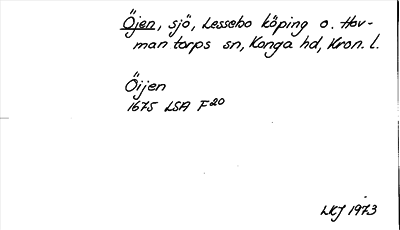 Öjen, sjö, Lessebo köping o. Hov-
mantorps sn, Konga hd, Kron. l.
Öijen
1675 LSA F20
LKJ 1973